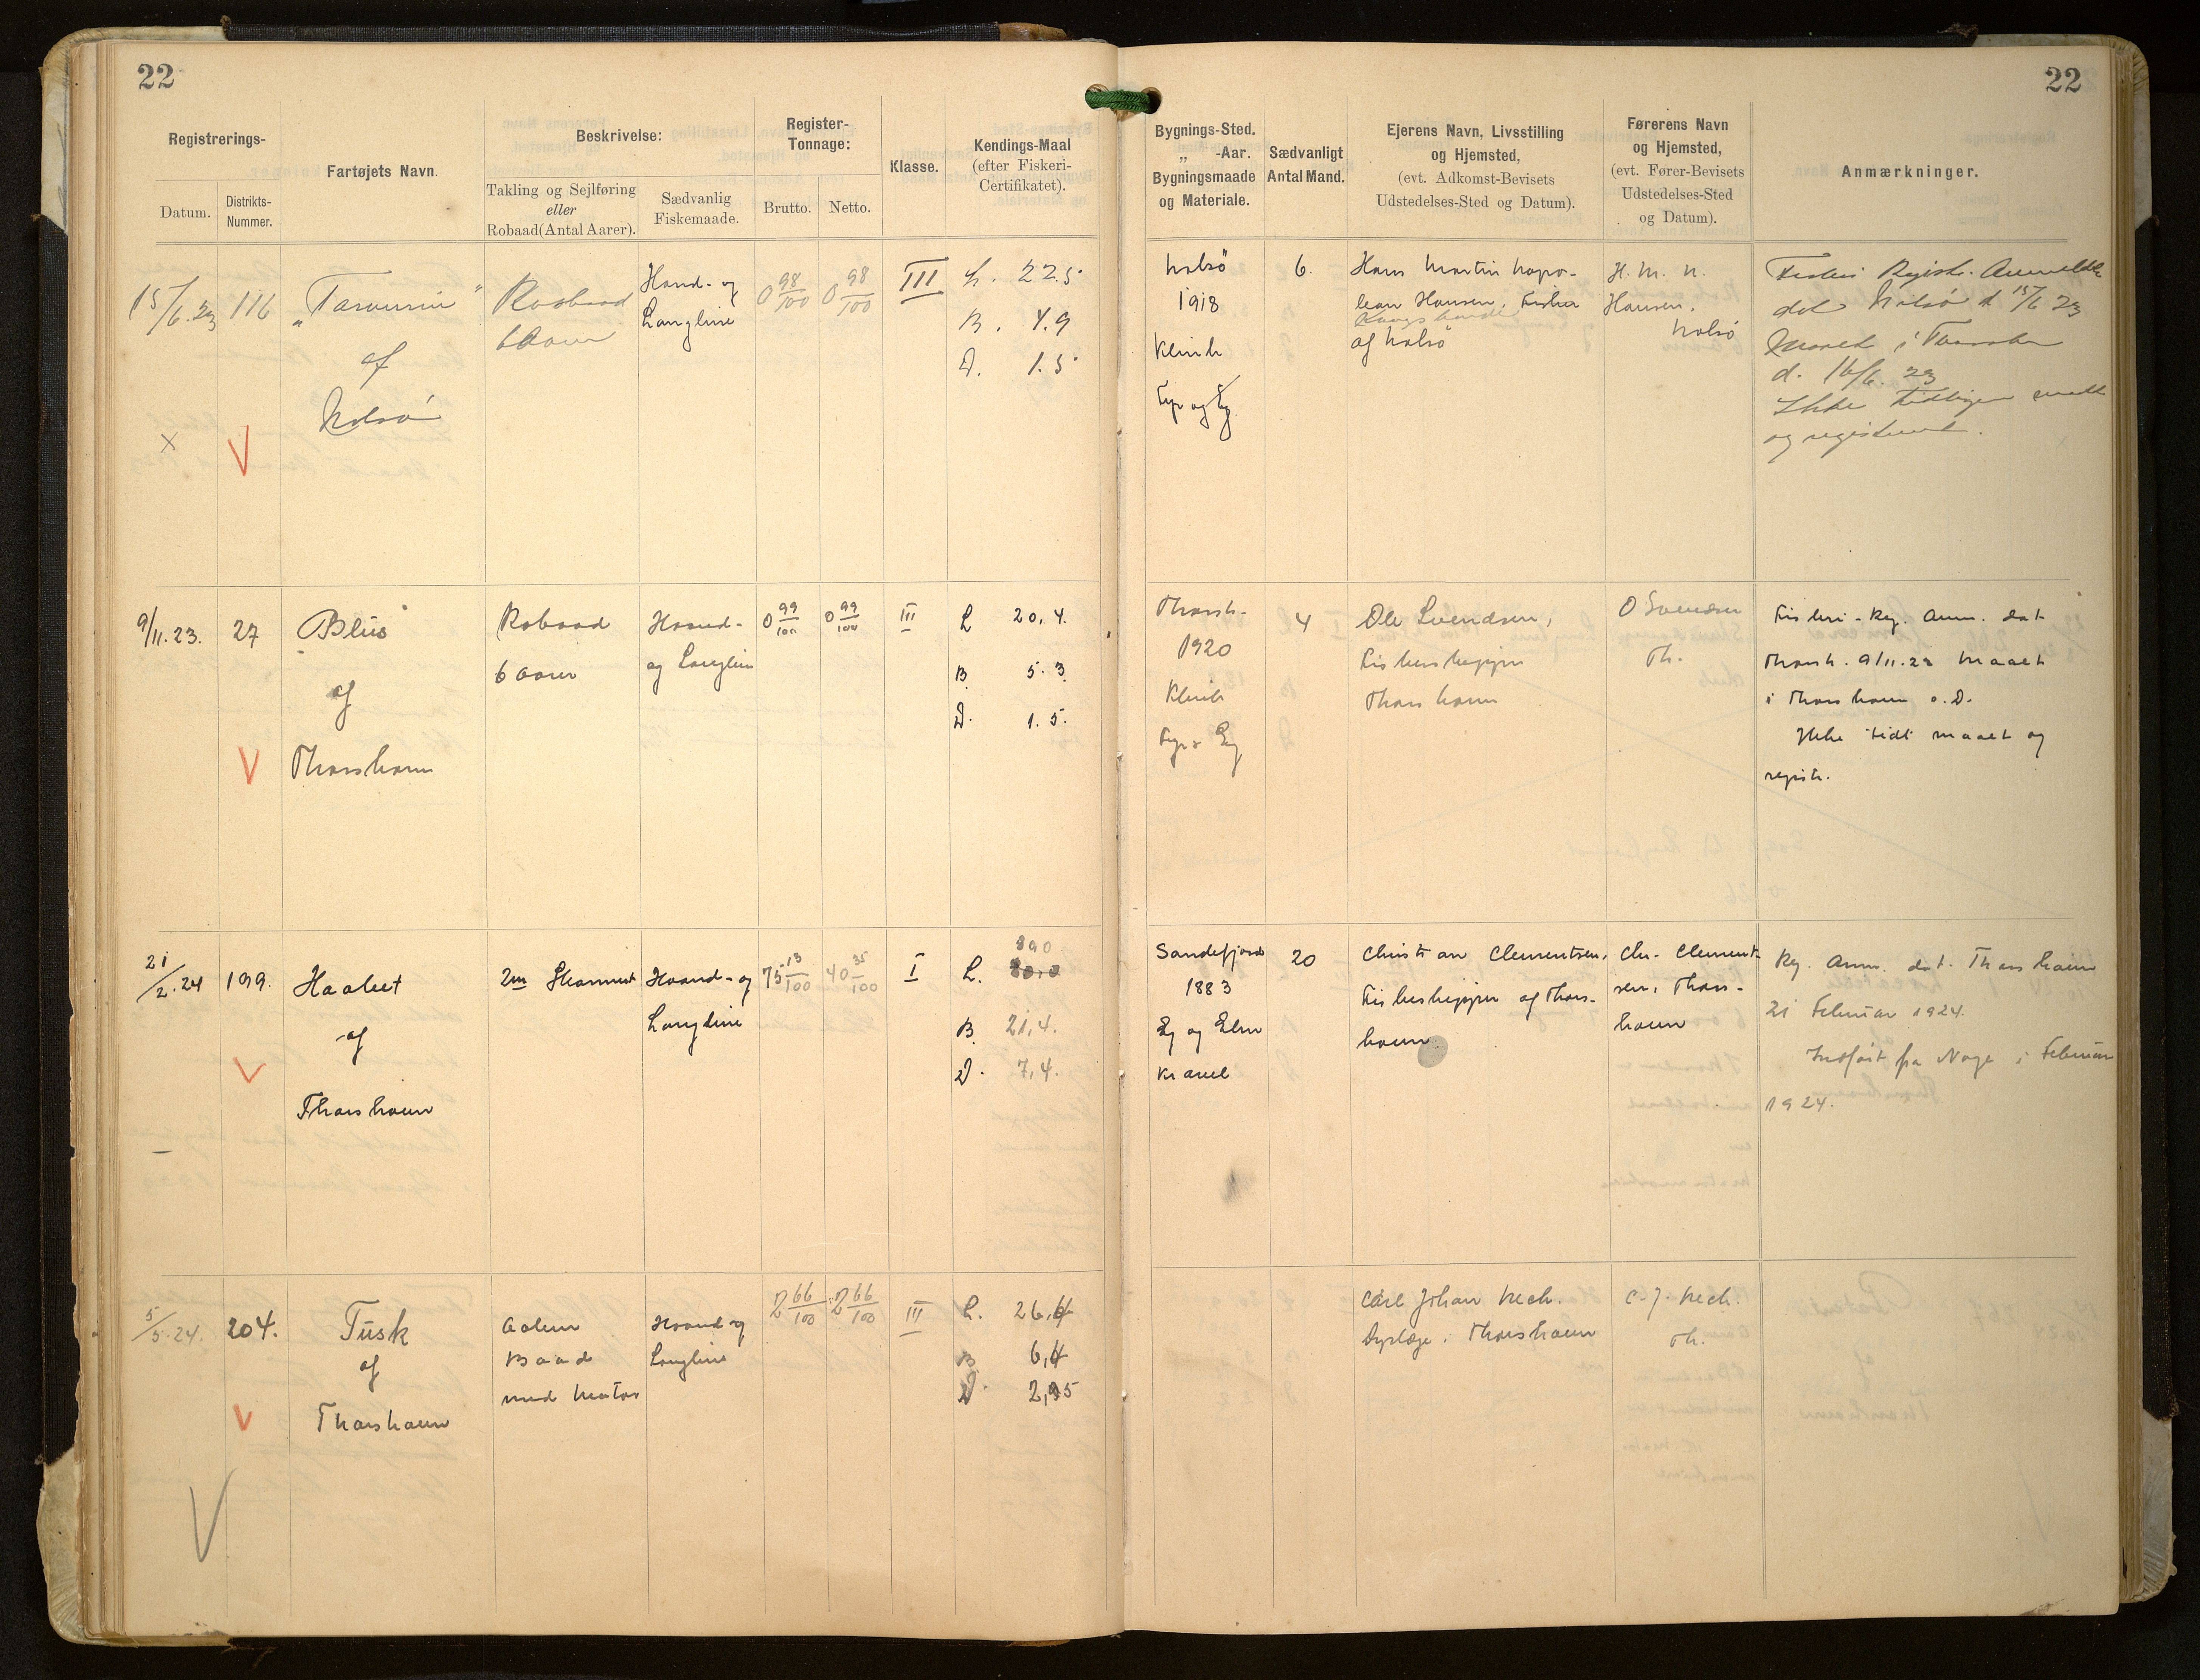 22
22
Registrerings-
Datum.
Distrikts-
Nummer.
Fartøjets Navn.
Beskrivelse:
Takling og Sejlføring
eller
Robaad (Antal Aarer).
Sædvanlig
Fiskemaade.
Register-
Tonnage:
Brutto.
Netto.
Klasse.
Kendings-Maal
(efter Fiskeri-
Certifikatet).
Bygnings-Sted.
„ -Aar.
Bygningsmaade
og Materiale.
Sædvanligt
Antal Mand.
Ejerens Navn, Livsstilling
og Hjemsted,
(evt. Adkomst-Bevisets
Udstedelses-Sted og Datum).
Førerens Navn
og Hjemsted,
(evt. Fører-Bevisets
Udstedelses-Sted
og Datum).
Anmærkninger.
15/6.23
116
af
Nolsö
Robaad
6 Aarer
Haand- og
Langline
0 98/100
0 98/100
III
L. 22.5
B. 4.9
D. 1.5
Nolsö
1918
Klink
Fyr og Eg
6.
Hans Martin Napo-
leon Hansen, Fisker
af Nolsö
H. M. N.
Hansen,
Nolsö
Fiskeri Regist. Anmeldelse
dat Nolsö d 15/6 23
Maalt i Thorshavn
d. 16/6. 23
Ikke tidligere maalt
og registreret.
9/11.23.
27
Blus
af
Thorshavn
Robaad
6 Aarer
Haand-
og Langline
0 99/100
0 99/100
III
L 20,4.
B 5.3
D. 1.5.
Thorsh.
1920
Klink
Fyr & Eg
4
Ole Svendsen,
Fiskeskipper
Thorshavn
O Svendsen
Th.
Fiskeri-Reg. Anm. dat
Thorsh. 9/11.23 Maalt
i Thorshavn s. D.
Ikke tidl maalt og
registr.
21/2.24
199.
Haabet
af
Thorshavn
2m Skonnert
Haand- og
Langline
75 13/100
40 35/100
I
L. 
B. 21,4.
D. 7,4.
Sandefjord
1883
Eg og Elm
Kravel
20
Christian Clementsen,
Fiskeskipper af Thors-
havn
Chr. Clement-
sen, Thors-
havn
Reg. Anm. dat. Thorshavn
21 Februar 1924.
Indført fra Norge i Februar
1924.
5/5.24.
204.
Tusk
af
Thorshavn
Aaben
Baad
med Motor
Haand og
Langline
2 66/100
2 66/100
III
L. 26,4
B. 6,4
D. 2,95
Carl Johan Nech.
Dyrlæge, Thorshavn
C. J. Nech.
Th.